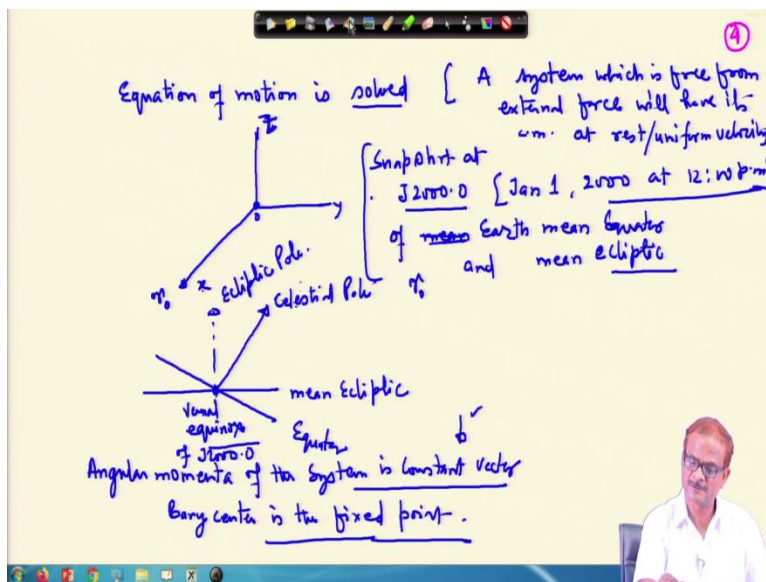 4
Equation of motion is solved [ A system which is free from
external force will have its
c.m. at rest/uniform velocity
z
Snapshot at
J2000.0 [Jan 1, 2000 at 12:00 p.m
y
0
of mean Earth mean Equator
and mean ecliptic
♈0 x
♈0
Ecliptic Pole.
Celestial Pole
mean Ecliptic
Vernal
equinox
of J2000.0
Equator
Angular momenta of the system is constant vector
Bary center is the fixed point.